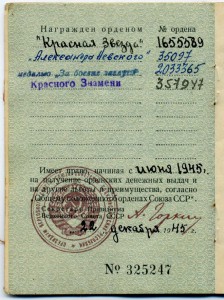 Награжден орденом № ордена
"Красная Звезда" 1655589
"Александра Невского" 35097
медалью "За боевые заслуги" 2033365
Красного Знамени
Имеет право, начиная с июня 1945 г.
на получение орденских денежных выдач и
на другие льготы и преимущества, согласно
«Общему положению об орденах Союза ССР».
Секретарь Президиума
Верховного Совета СССР А. Горкин
22 декабря 1945 г.
№ 325247